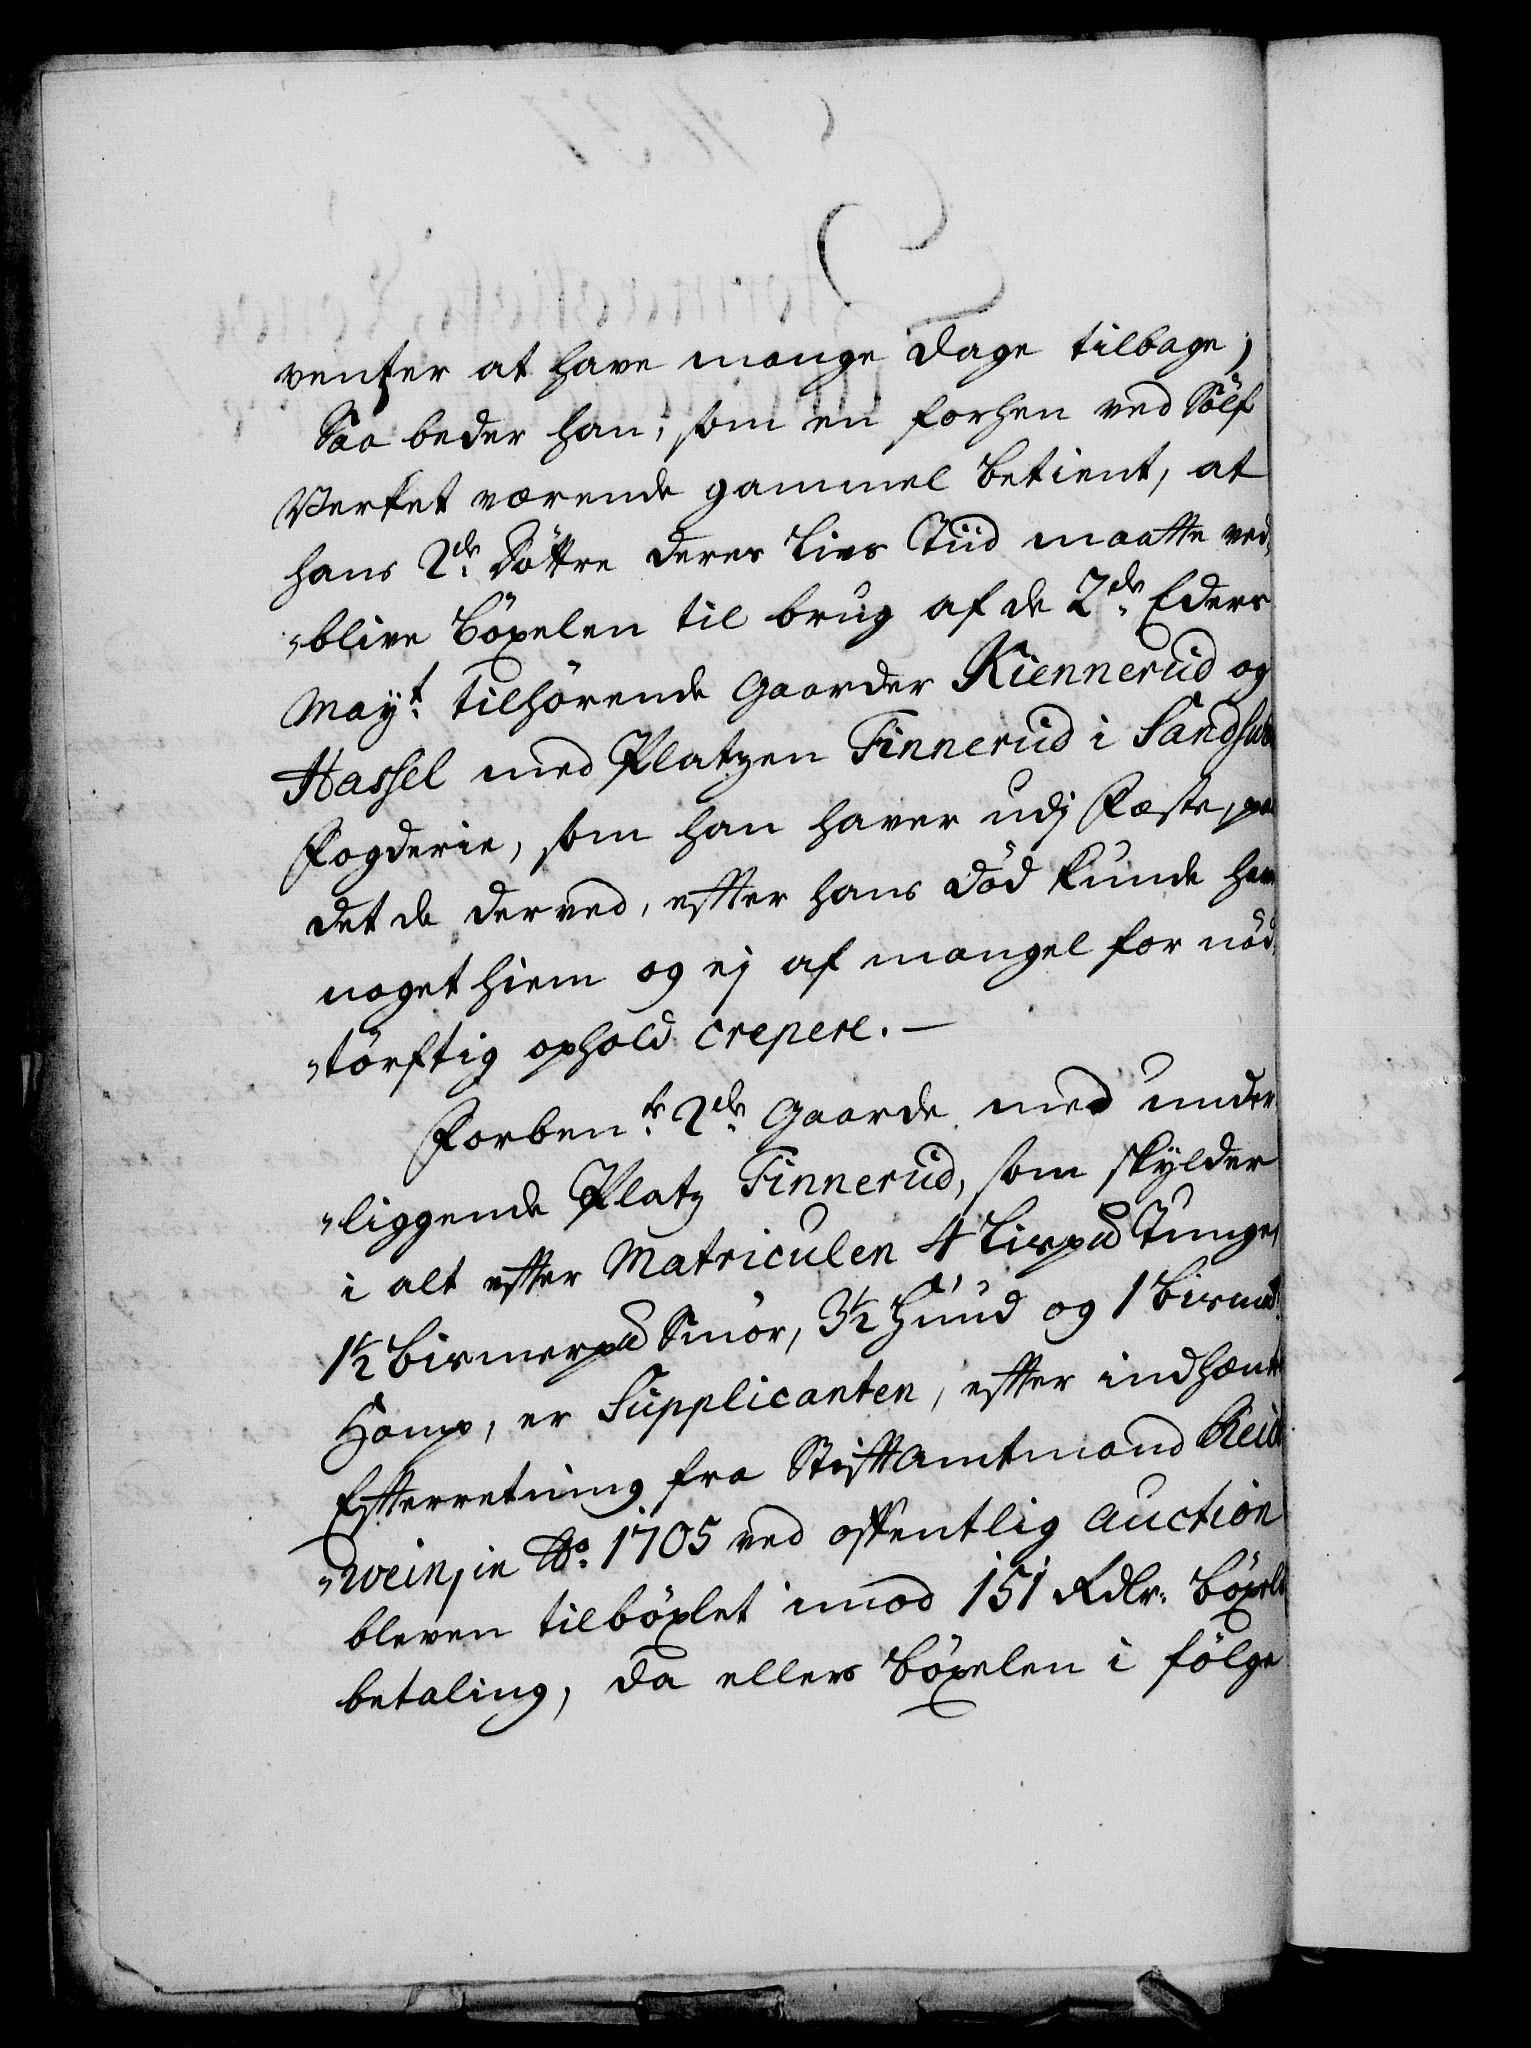 venter at have mange Dage tilbage;
Saa beder han, som en forhen ved Sölf
Verket værende gammel betient, at
hans 2de Döttre deres Livs Tiid maatte ved,
„blive böxelen til brug af de 2de Eders
Mayt. tilhörende Gaarder Kiennerud og
Hassel med Platzen Finnerud i Sandsv
Fogderie, som han haver udj Fæste, paa
det de derved, effter hans Död kunde have
noget hiem og ej af mangel for nöd,
„törftig ophold crepere. —
Forbente. 2de Gaarde med under
„liggende Platz Finnerud, som skylder
i alt effter Matriculen 4 Lispd Tunge,
1½ bismerpd Smör, 3½ Huud og 1 bismd.
Hamp, er Supplicanten, effter indhænt
Effterretning fra Stifftamtmand Reic
„wein, in Ao. 1705 ved offentlig Auction
bleven tilböxlet imod 151 Rdlr. böxels
betaling, da ellers böxelen i fölge